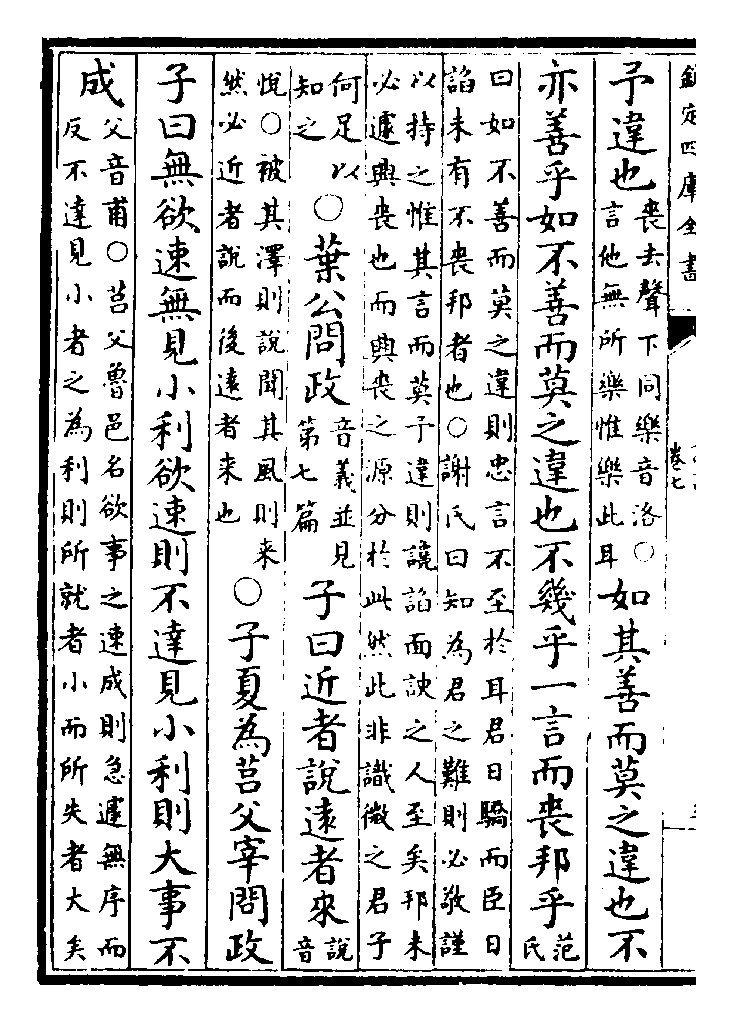 欽定四庫全書
卷七
予違也喪去聲下同樂音洛○言他無所樂惟樂此耳如其善而莫之違也不
亦善乎如不善而莫之違也不幾乎一言而喪邦乎范氏
曰如不善而莫之違則忠言不至於耳君日驕而臣日
諂未有不喪邦者也○謝氏曰知為君之難則必敬謹
以持之惟其言而莫予違則讒諂面諛之人至矣邦未
必遽興喪也而興喪之源分於此然此非識微之君子
何足以知之○葉公問政音義並見第七篇子曰近者說遠者來說音
悅○被其澤則說聞其風則来然必近者說而後遠者来也○子夏為莒父宰問政
子曰無欲速無見小利欲速則不達見小利則大事不
成父音甫○莒父魯邑名欲事之速成則急遽無序而反不達見小者之為利則所就者小而所失者大矣